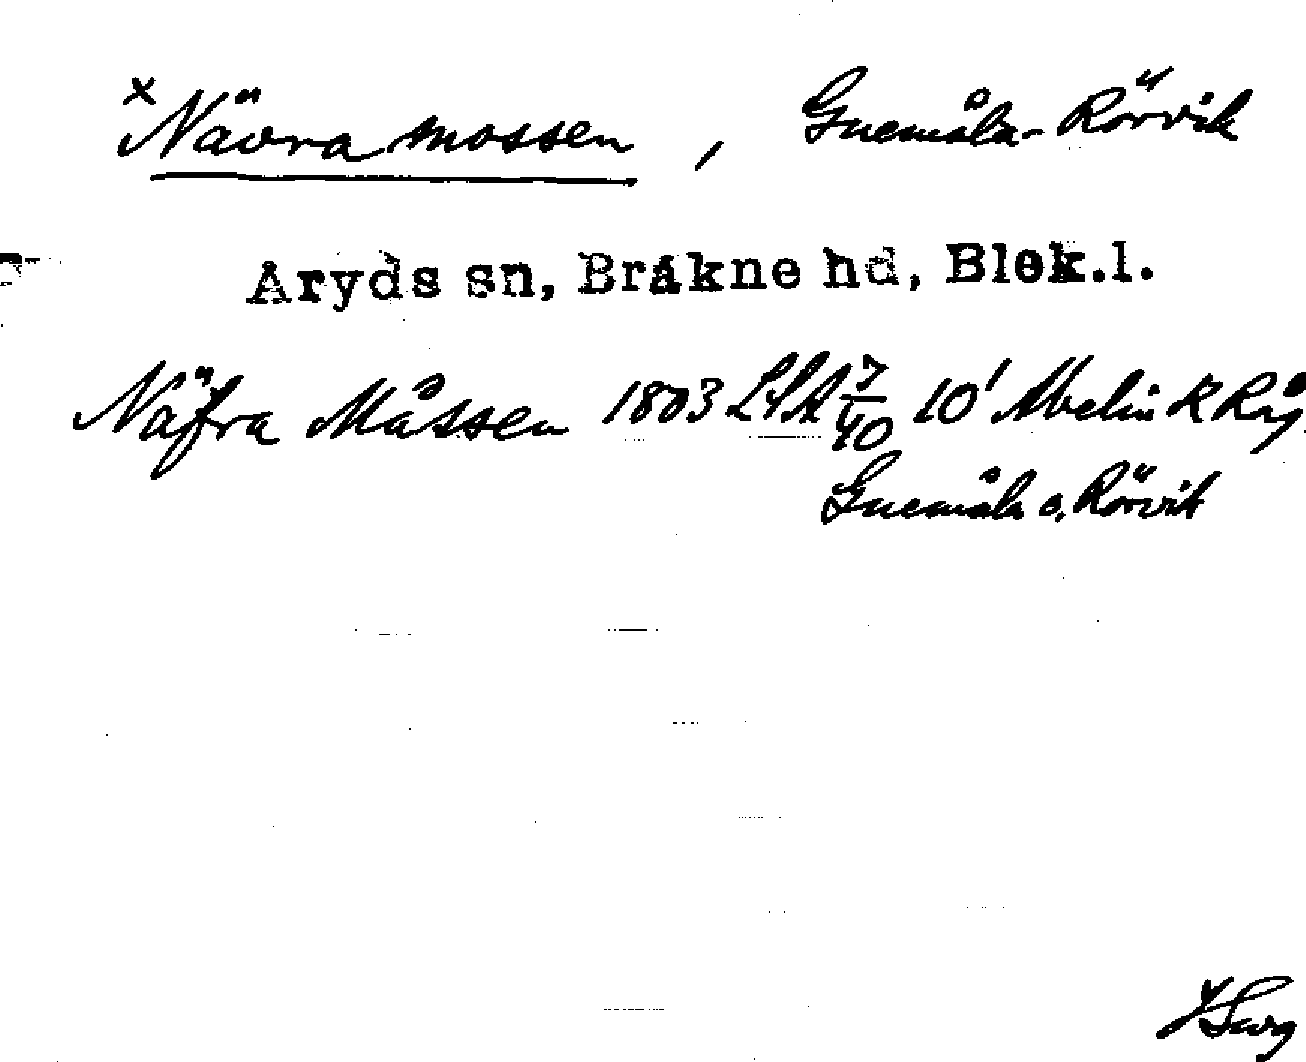 x Nävra mossen, Guemåla-Rörvik
Aryds sn, Bräkne hd, Blek.l.
Näfra Måssen 1803 LSA 7/40 10' Abelin K Råg
Guemåla o. Rörvik